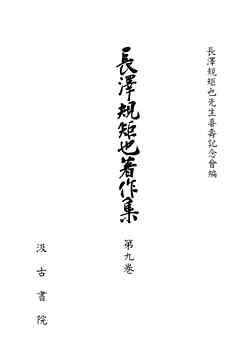 長澤規矩也先生喜壽記念會編
長澤規矩也著作集
第九巻
汲古書院